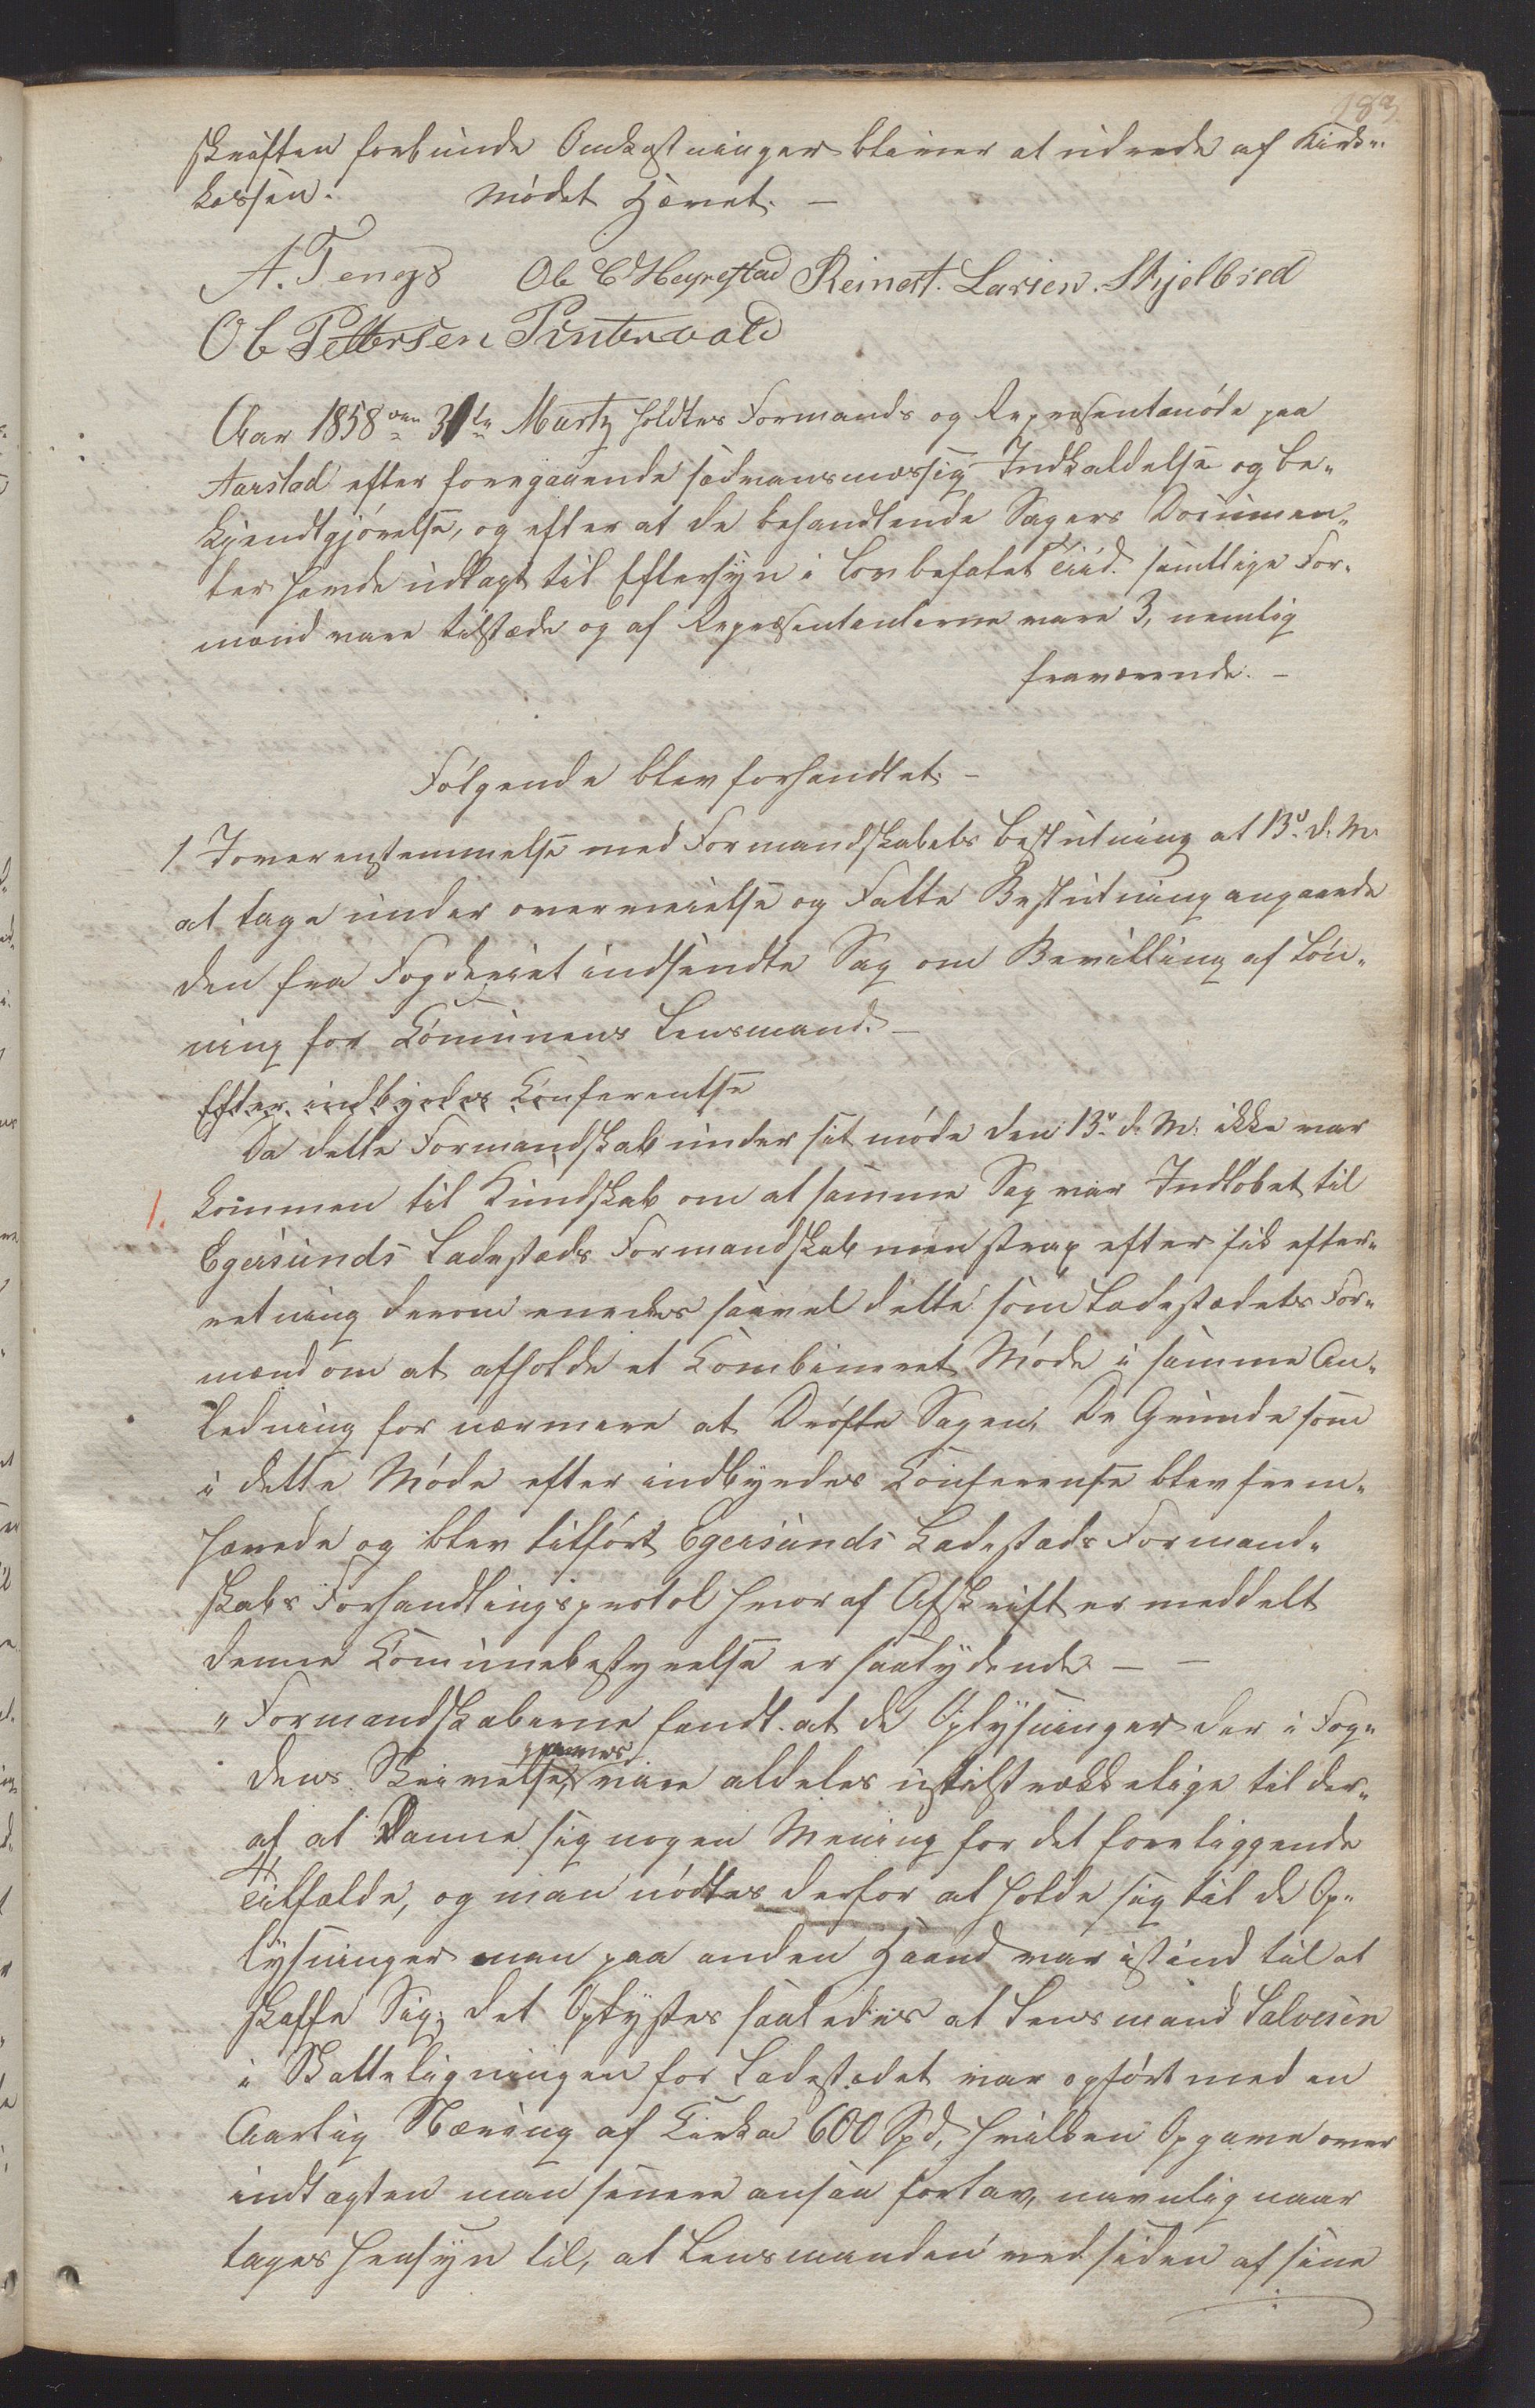 183
skriften forbunde Omkostninger bliver at udrede af Kirke-
kassen. Mødet Hævet. —
A. Tengs Ole C Hegrestad Reinert. Larsen. Skjelbred
Ole Pettersen Pintervold
Aar 1858 den 31te Martz holdtes Formands og Repræsentmøde paa
Aarstad efter foregaaende sædvansmæssig Indkaldelse og be-
kjendtgjørelse, og efter at de behandlende Sagers Documen-
ter havde udlagt til Eftersyn i lovbefalet Tiid. samtlige For-
mænd vare tilstæde og af Repræsentanterne vare 3, nemlig
fraværende. —
Følgende blev forhandlet. —
1 Joverenstemmelse med Formandskabets beslutning at 13de d. M.
at tage under overveielse og Fatte Beslutning angaaende
den fra Fogderiet indsendte Sag om Bevilling af Løn-
ning for Communens Lensmand. —
Efter indbyrdes Conferentse
Da dette Formandskab under sit møde den 13de d. M. ikke var
1. kommen til Kundskab om at samme Sag var Indløbet til
Egersunds Ladesteds Formandskab men strax efter fik efter-
retning derom enedes saavel dette som Ladestedets For-
mænd om at afholde et Combineret Møde i samme An-
ledning for nærmere at Drøfte Sagen. De Grunde som
i dette Møde efter indbyrdes Conferense blev frem-
hævede og blev tilført Egersunds Ladesteds Formand-
skabs Forhandlingsprotol hvoraf Afskrift er meddelt
denne Communebestyrelse er saalydende — —
" Formandskaberne fandt at de Oplysninger der i Fog-
dens Skrivelse, vare aldeles utilstrækkelige til der-
af at Danne sig nogen Mening for det foreliggende
Tilfælde, og man nødtes derfor at holde sig til de Op-
lysninger man paa anden Haand var istand til at
skaffe Sig; det Oplystes saaledes at Lensmand Salvesen
i Skatteligningen for Ladestedet var opført med en
Aarlig Næring af Cirka 600 Spd, hvilken Opgave over
indtægten man senere ansaa forlav, navnlig naar
tages Hensyn til, at Lensmanden ved siden af sine